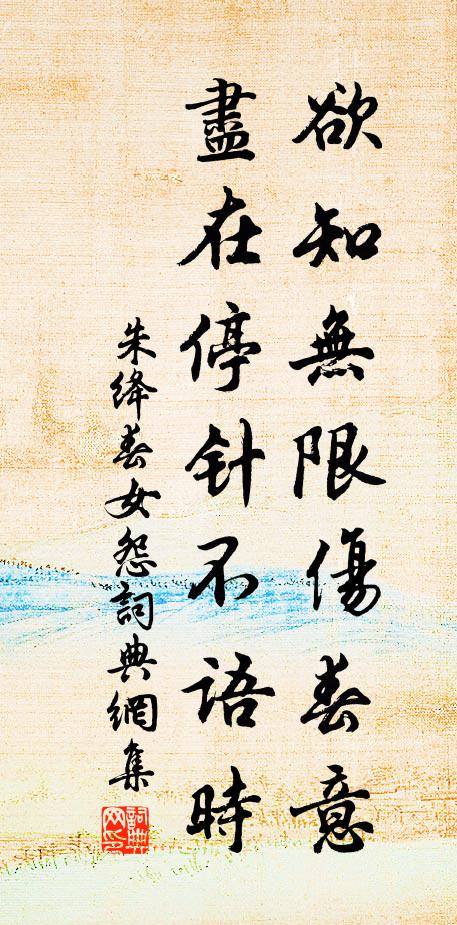 欲知無限傷春意
盡在停针不語時
朱绛春女怨詞典網集
詞典网印